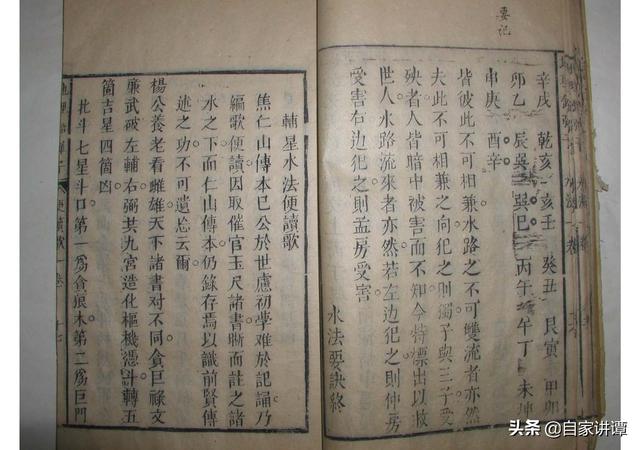 要記
辛戌 乾亥 亥壬 癸丑 艮寅 甲卯
卯乙 辰巽 巽巳 丙午 午丁 未坤
申庚 酉辛
皆彼此不可相兼水路之不可雙流者亦然
夫此不可相兼之向犯之則獨子與三子受
殃者人皆暗中被害而不知今特標出以救
世人水路流來者亦然若左邊犯之則仲房
受害右邊犯之則孟房受害
水法要訣終
輔星水法便讀歌
焦仁山傳本已公於世慮初學難於記誦乃
編歌便讀因取催官玉尺諸書晰而註之諸
水之下面仁山傳本仍錄存焉以識前賢傳
述之功不可遺忘云爾
楊公養老看雌雄天下諸書對不同貪巨祿文
廉武破左輔右弼其九宮造化樞機憑斗轉五
箇吉星四箇凶
北斗七星斗口第一為貪狼木第二為巨門
便讀歌
卷
十七
头条 @自家讲谭